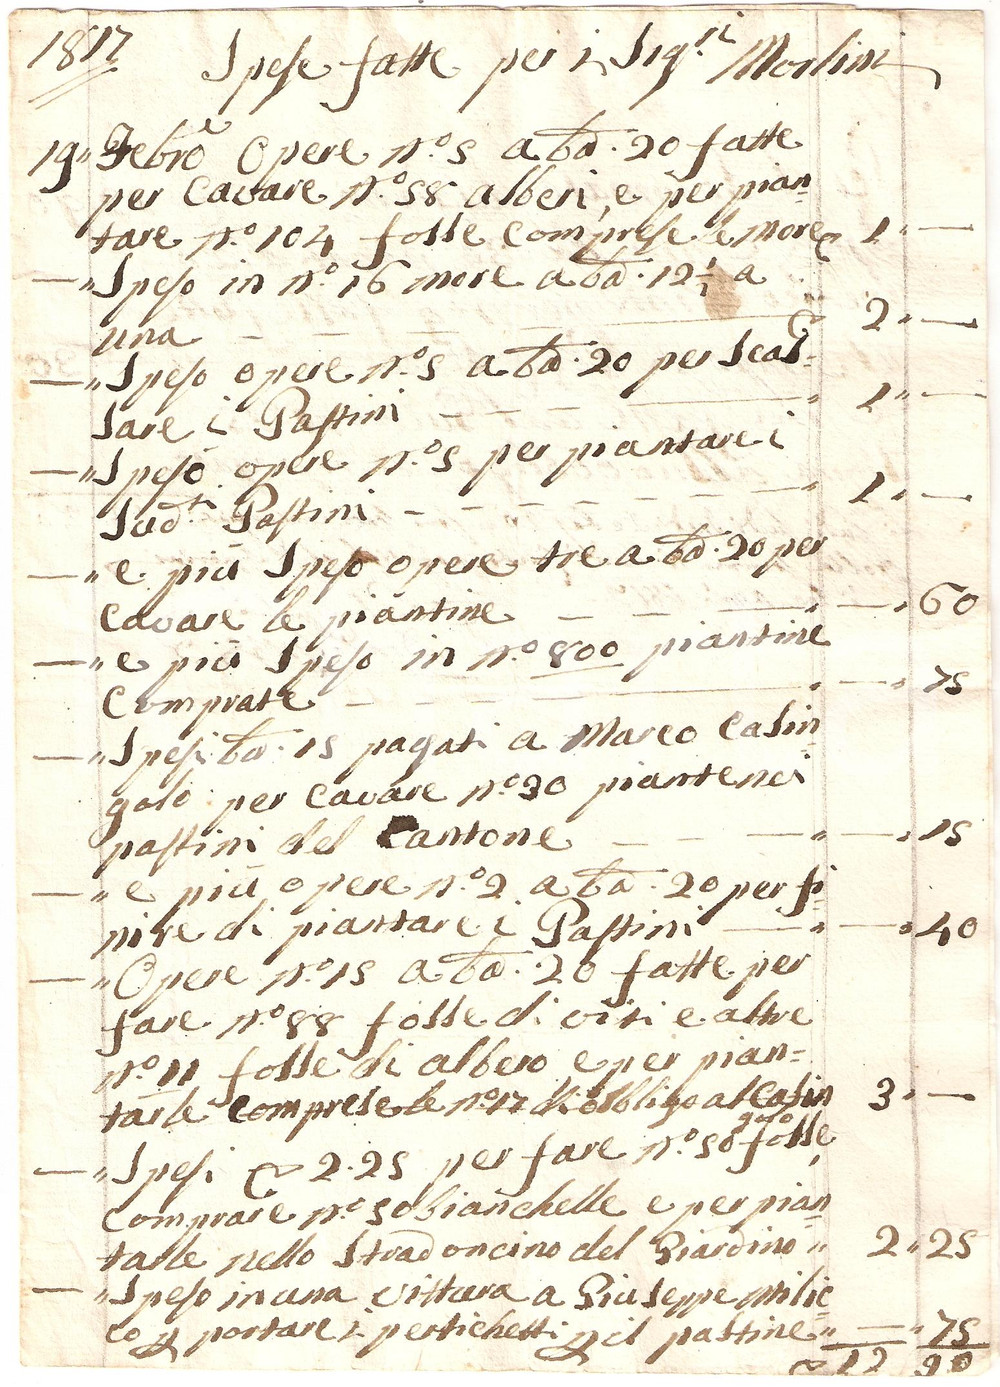 1817
Spese fatte per i Sig.ri Morlini
19" Febro Opere n.o 5 a bd. 20 fatte
per Cavare n.o 58 alberi, e per pian=
tare n.o 104 fosse comprese le more 1" —
—" Speso in n.o 16 more a bd. 12 ½ a
una — — — 2" —
—" Speso opere n.o 5 a bd. 20 per Scas=
sare i Pastini — — — " 1" —
—" Speso opere n.o 5 per piantare i
Sud.ti Pastini — — — " 1" —
—" e più Speso opere tre a bd. 20 per
Cavare le piantine — — " —" 60
—" e più Speso in n.o 800 piantine
Comprate — — — " —" 75
—" Spesi bd. 15 pagati a Marco Casin=
golo per Cavare n.o 30 piante nei
pastini del Cantone — — " —" 15
—" e più opere n.o 2 a bd. 20 per fi=
nire di piantare i Pastini — " —" 40
—" Opere n.o 15 a bd. 20 fatte per
fare n.o 88 fosse di viti e altre
n.o 11 fosse di albero e per pian=
tarle comprese le n.o 17 di obbligo al Casin
golo 3" —
—" Spesi 2.25 per fare n.o 50 fosse,
comprare n.o 50 bianchelle e per pian=
tarle nello Stradoncino del Giardino " 2" 25
—" Speso in una vittura a Giuseppe Milic
co portare i pertichetti il pastine " —" 75
12 90